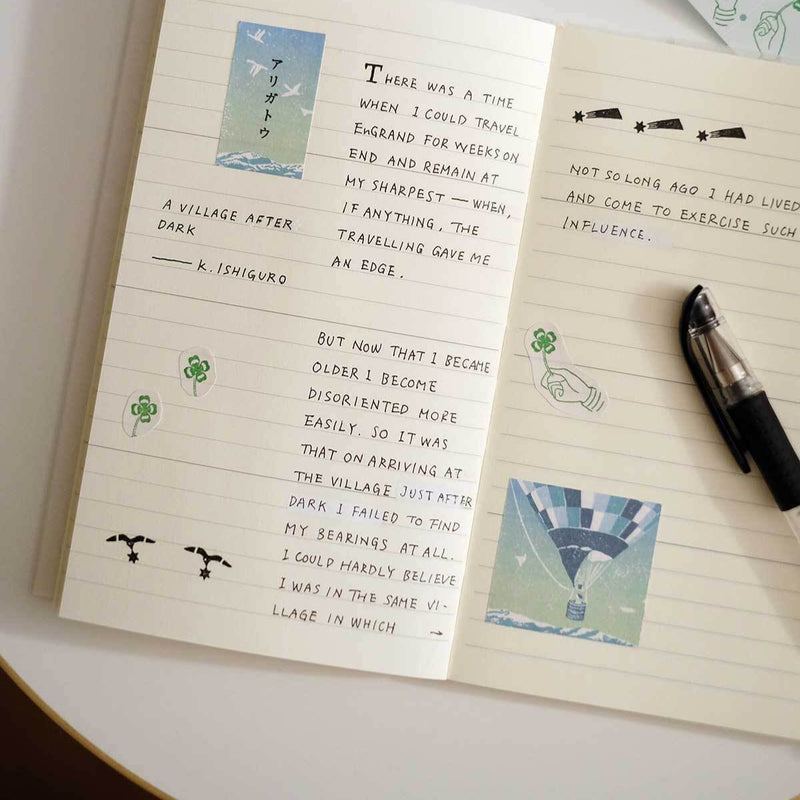 アリガトウ
A VILLAGE AFTER
DARK
— K. ISHIGURO
THERE WAS A TIME
WHEN I COULD TRAVEL
EnGRAND FOR WEEKS ON
END AND REMAIN AT
MY SHARPEST — WHEN,
IF ANYTHING, THE
TRAVELLING GAVE ME
AN EDGE.
BUT NOW THAT I BECAME
OLDER I BECOME
DISORIENTED MORE
EASILY. SO IT WAS
THAT ON ARRIVING AT
THE VILLAGE JUST AFTER
DARK I FAILED TO FIND
MY BEARINGS AT ALL.
I COULD HARDLY BELIEVE
I WAS IN THE SAME VI-
LLAGE IN WHICH →
NOT SO LONG AGO I HAD LIVED
AND COME TO EXERCISE SUCH
INFLUENCE.